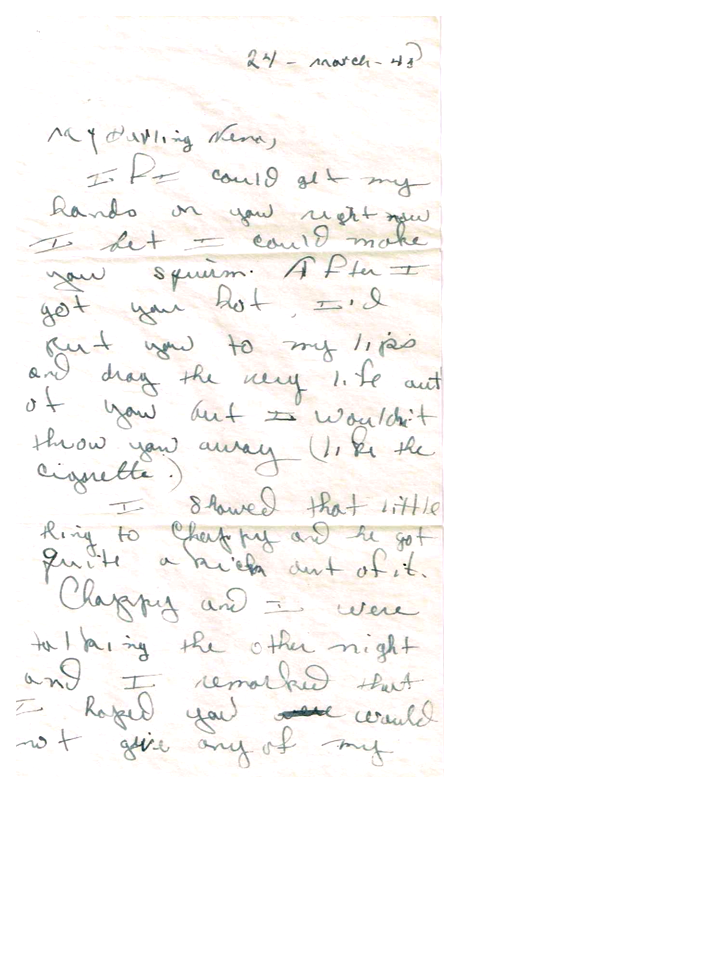 24 - march - 43
My Darling Nena,
If I could get my
hands on you right now
I bet I could make
you squirm. After I
got you hot, I'd
put you to my lips
and drag the very life out
of you but I wouldn't
throw you away (like the
cigrette.)
I showed that little
thing to Chappy and he got
quite a kick out of it.
Chappy and I were
talking the other night
and I remarked that
I hoped you would
not give any of my